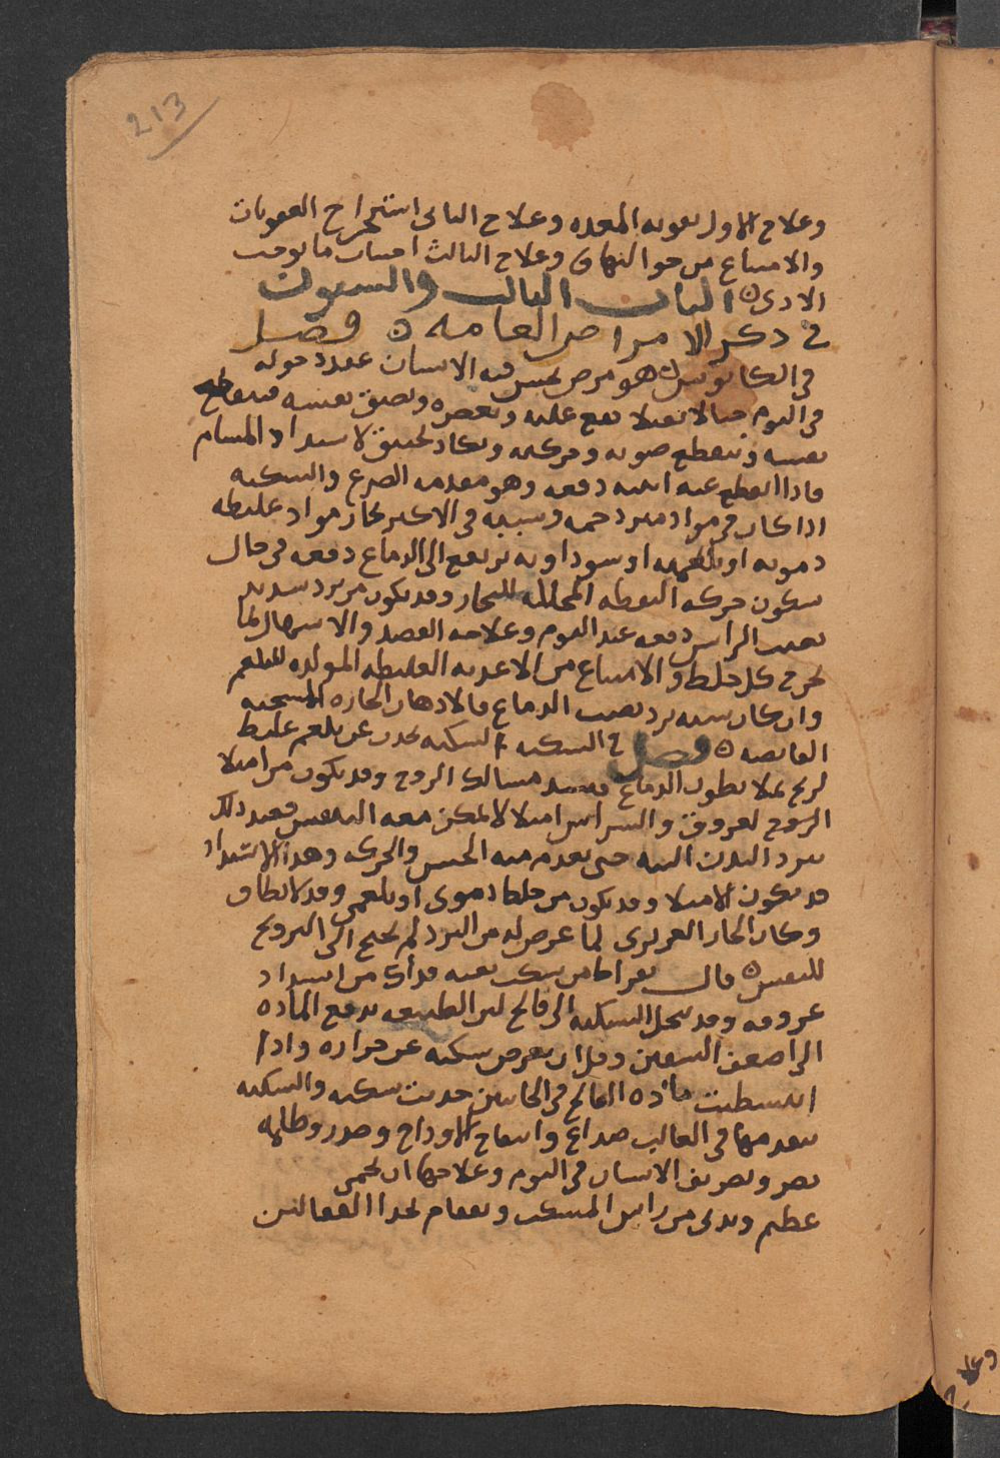 213
وعلاج الاول تقويه المعده وعلاج الثانى استخراج العفونات
والامتناع من الهواء وعلاج الثالث اجتناب ما يوجب
الاذى ٥ الباب الثالث والسبعون
فى ذكر الامراض العامه ٥ فصل
فى الكابوس هو مرض يحس فيه الانسان عند دخوله
فى النوم خيالا ثقيلا يقع عليه ويعصره ويضيق نفسه فينقطع
نفسه وينقطع صوته وحركته ويكاد يختنق لانسداد المسام
فاذا انقطع عنه انتبه دفعه وهو مقدمه الصرع والسكته
اذا كان فى مواد مزدحمه وسببه فى الاكثر بخار مواد غليظه
دمويه او بلغميه او سوداويه ترتفع الى الدماغ دفعه فى حال
سكون حركه اليقظه المحلله للبخار وقد يكون من برد شديد
يصيب الراس دفعه عند النوم وعلاجه الفصد والاسهال بما
يخرج كل خلط والامتناع من الاغذيه الغليظه المولده للبلغم
وان كان سببه برد يصيب الدماغ فالادهان الحاره المسخنه
القابضه ٥ فصل فى السكته السكته تحدث عن بلغم غليظ
لزج يملا بطون الدماغ فيسد مسالك الروح وقد يكون من امتلا
العروق والشرايين امتلا لا يمكن معه التنفس فعند ذلك
يبرد البدن البته حتى يعدم منه الحس والحركه وهذا الانسداد
قد يكون لامتلا وقد يكون من خلط دموى او بلغمى وقد لا يطاق
وكان الحار الغريزى لما عرض له من البرد لم يحتج الى الترويح
للنفس ٥ قال بقراط من سكت بغته فذلك من انسداد
عروقه وقد تنحل السكته الى فالج لان الطبيعه تدفع الماده
الى اضعف الشقين وقل ان يعرض سكته عن حراره واذا
انبسطت ماده الفالج فى الجانبين حدثت سكته والسكته
يتقدمها فى الغالب صداع وانتفاخ الاوداج ودوار وظلمه
بصر وتصريف الاسنان فى النوم وعلاجها ان يحمى
عظم ويدنى من راس المسكت ويقام بحذا القفا لئن